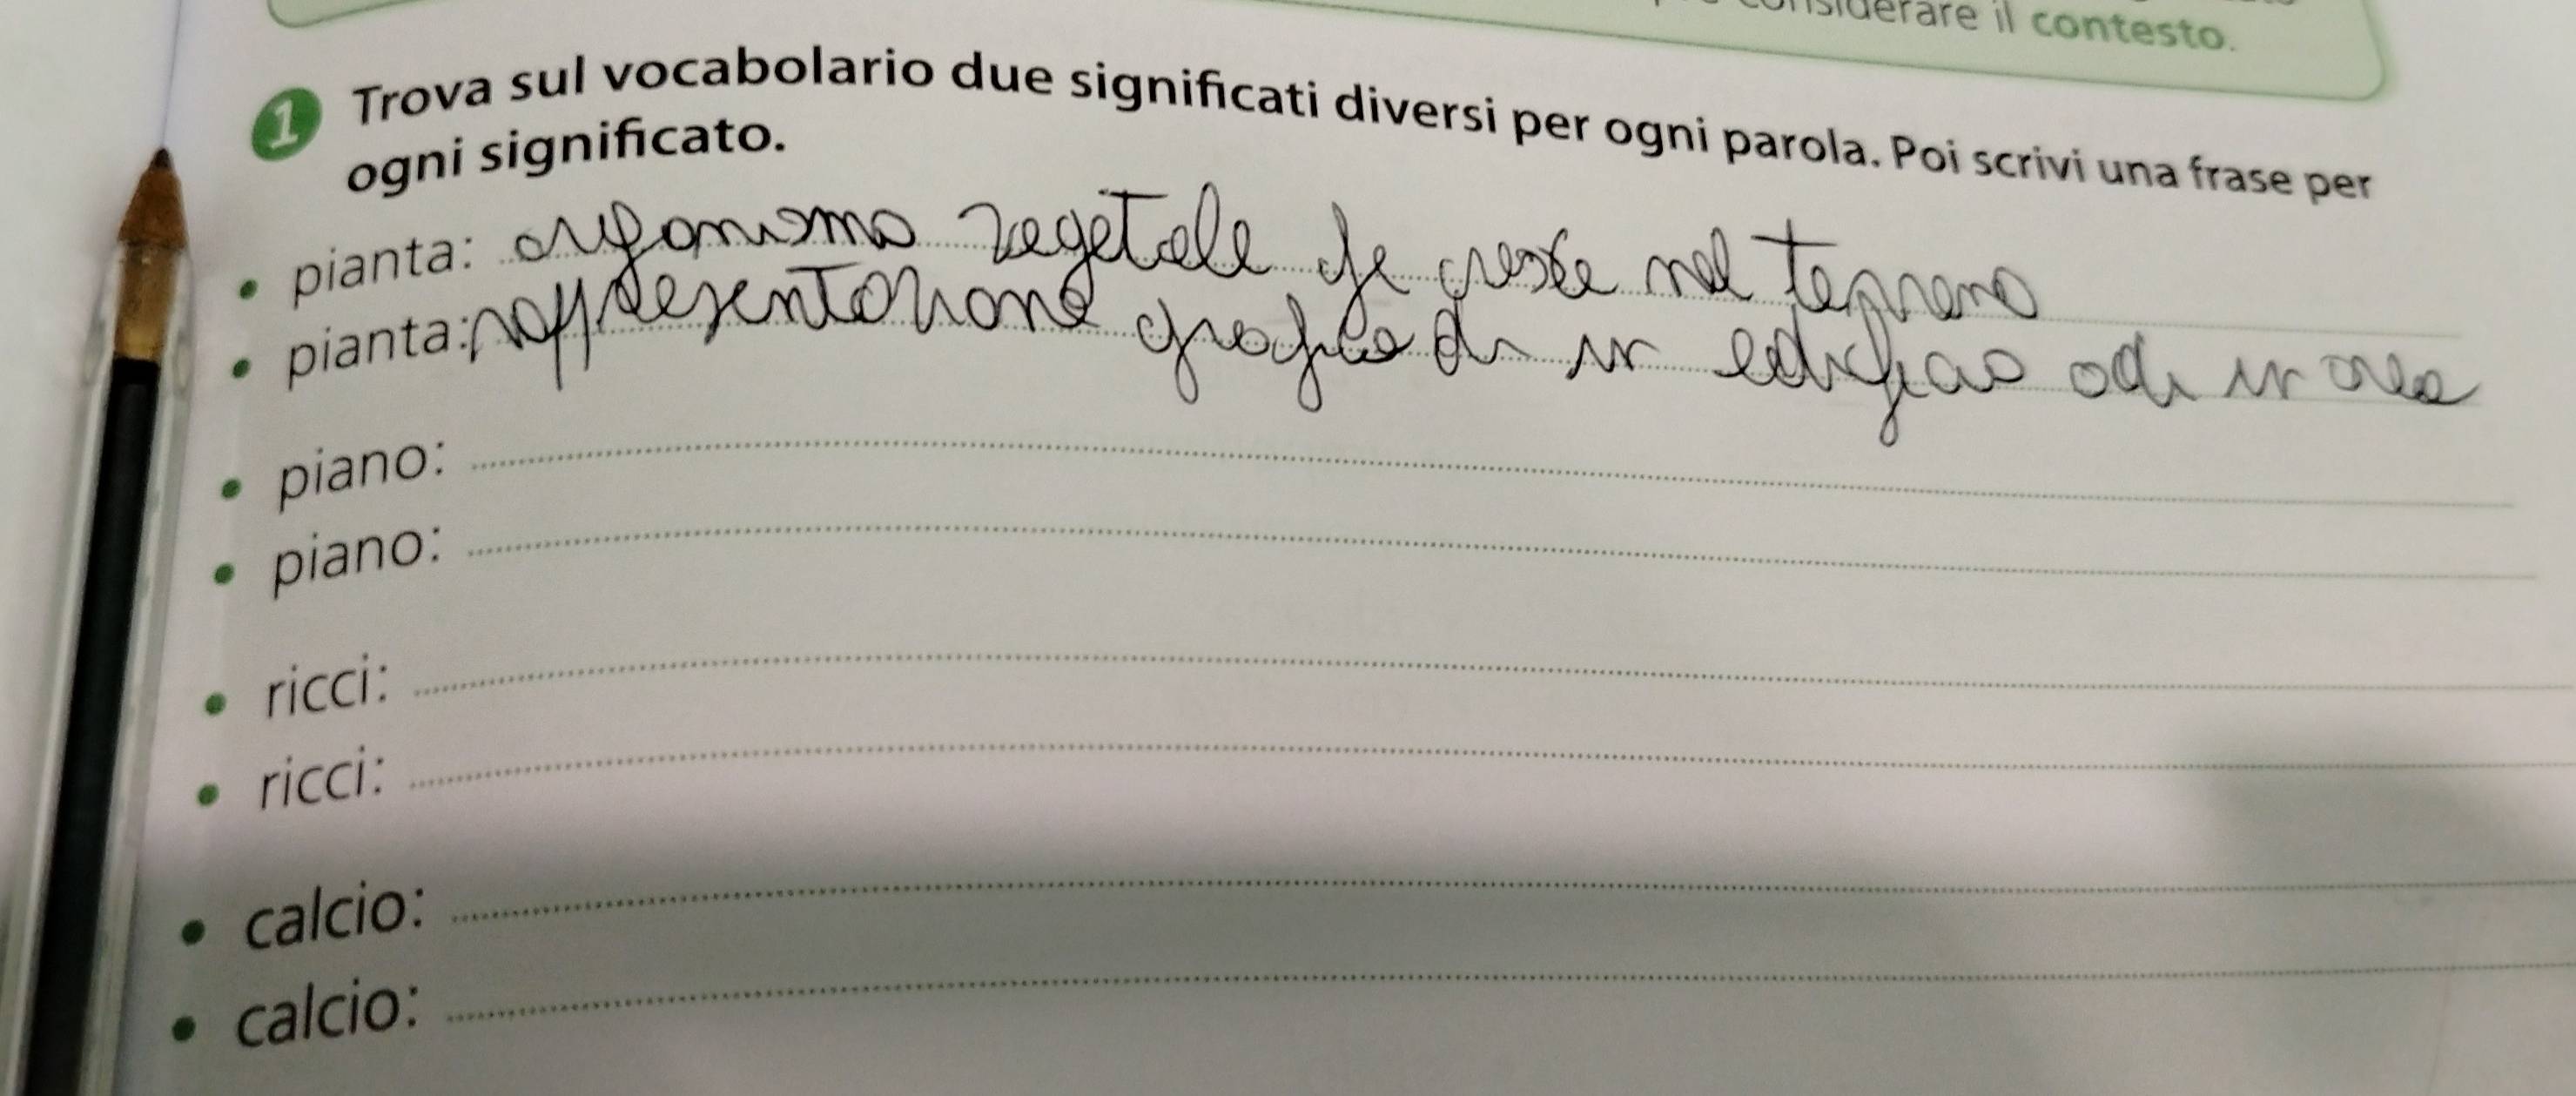 considerare il contesto.
1 Trova sul vocabolario due significati diversi per ogni parola. Poi scrivi una frase per
ogni significato.
• pianta: organismo vegetale che cresce nel terreno
• pianta: rappresentazione grafica di un edificio o di un area
• piano:
• piano:
• ricci:
• ricci:
• calcio:
• calcio: